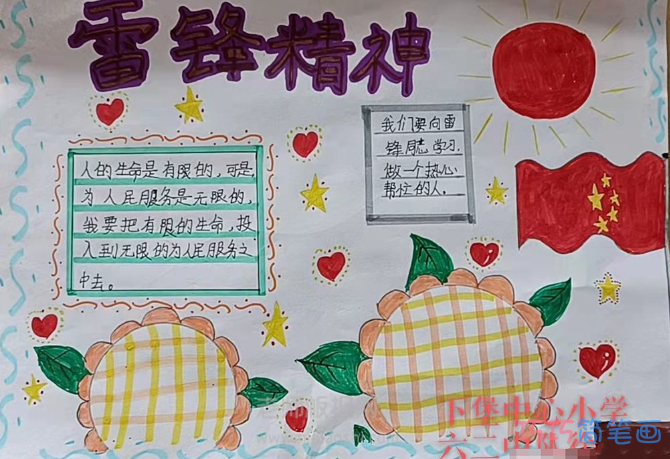 雷锋精神
人的生命是有限的,可是,
为人民服务是无限的,
我要把有限的生命,投
入到无限的为人民服务之
中去。
我们要向雷
锋同志学习.
做一个热心
帮忙的人.
下堡中心小学
简笔画